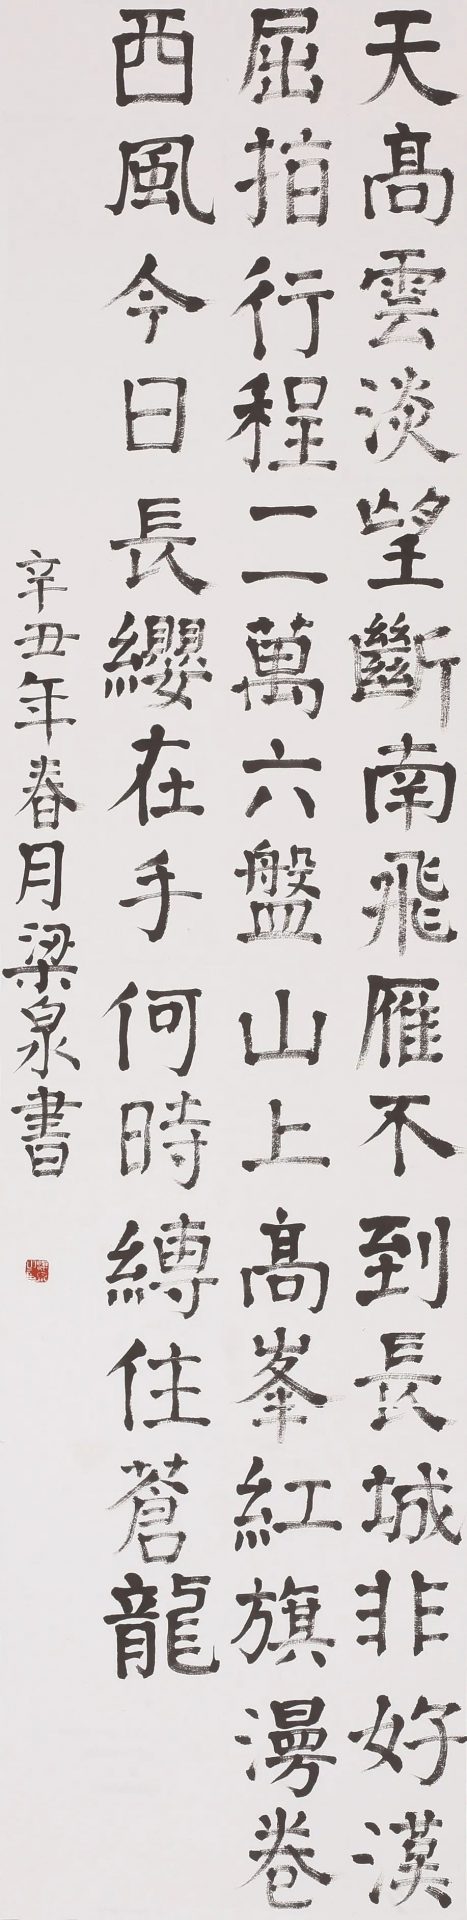 天高雲淡望斷南飛雁不到長城非好漢
屈指行程二萬六盤山上高峯紅旗漫卷
西風今日長纓在手何時縛住蒼龍
辛丑年春月梁泉書